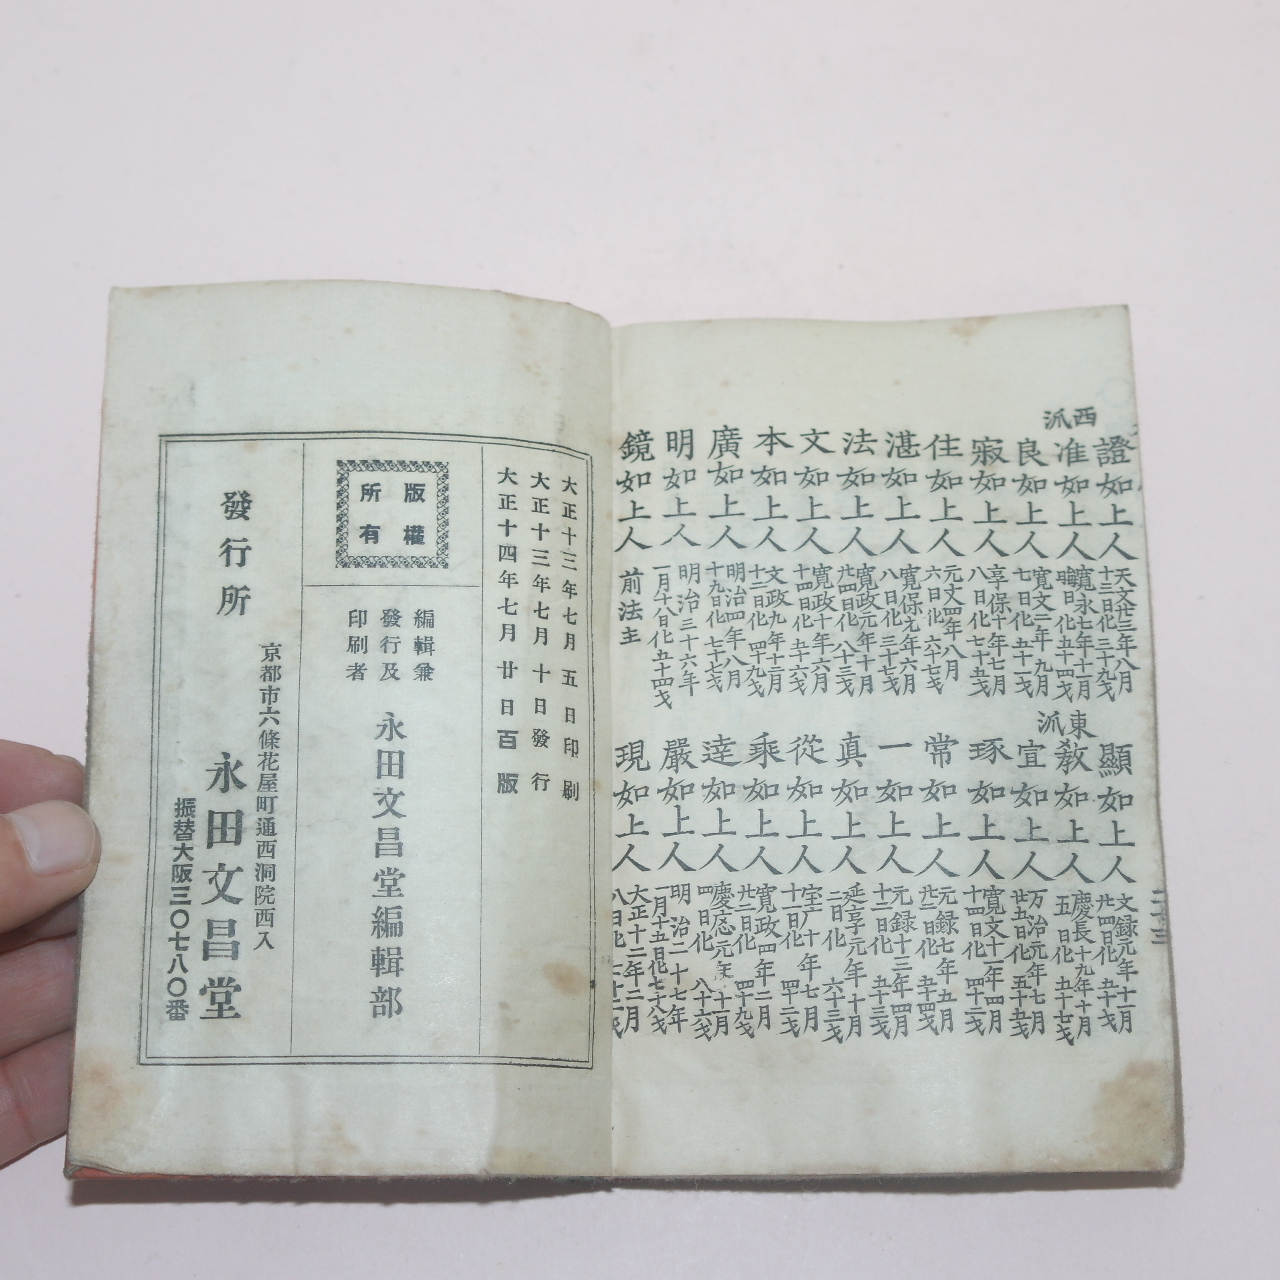 證如上人 天文廿三年八月
十三日化 三十九戈
西派
准如上人 寛永七年十一月
晦日化 五十四戈
良如上人 寛文二年九月
七日化 五十一戈
寂如上人 享保十年七月
八日化 七十五戈
住如上人 元文四年八月
六日化 六十七戈
湛如上人 寛保元年六月
八日化 二十七戈
法如上人 寛政元年十月
廿四日化 八十三戈
文如上人 寛政十一年六月
十四日化 五十六戈
本如上人 文政九年十二月
十二日化 四十九戈
廣如上人 明治四年八月
十九日化 七十七戈
明如上人 明治三十六年
一月十八日化 五十四戈
鏡如上人 前法主
顯如上人 文録元年十一月
廿四日化 五十戈
東派
教如上人 慶長十九年十月
五日化 五十七戈
宣如上人 万治元年七月
廿五日化 五十五戈
琢如上人 寛文十一年四月
十四日化 四十二戈
常如上人 元録七年五月
廿二日化 五十四戈
一如上人 元録十三年四月
十二日化 五十三戈
真如上人 延享元年十月
二日化 六十三戈
從如上人 宝广十年七月
十一日化 四十二戈
乘如上人 寛政四年二月
廿二日化 四十九戈
達如上人 慶應元年十一月
四日化 八十六戈
嚴如上人 明治二十七年
一月十五日化 七十八戈
現如上人 大正十二年二月
八日化 七十二戈
二十三
大正十三年七月五日印刷
大正十三年七月十日發行
大正十四年七月廿日百版
版權
所有
編輯兼
發行及
印刷者
永田文昌堂編輯部
京都市六條花屋町通西洞院西入
發行所 永田文昌堂
振替大阪三〇七八〇番